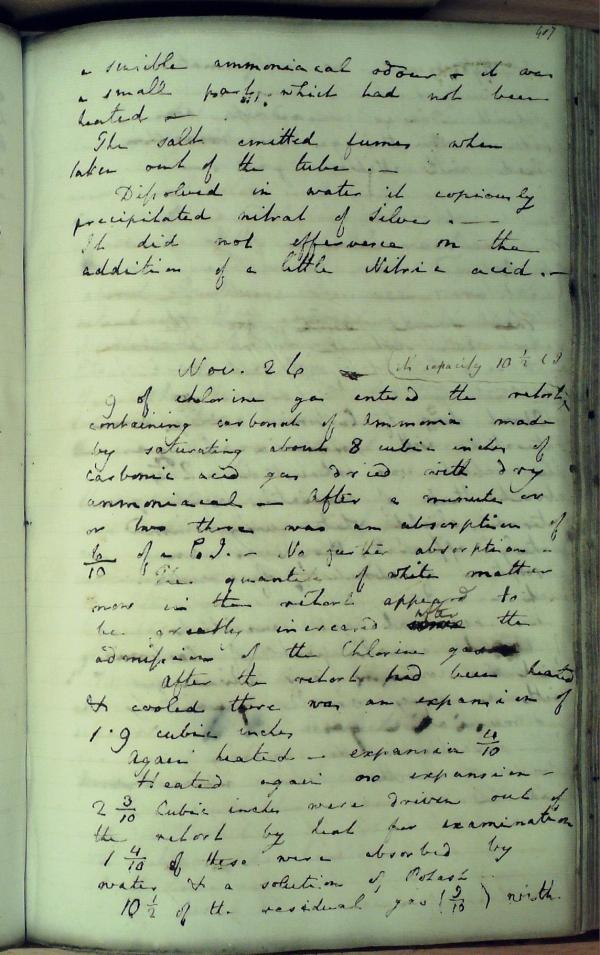 407
a sensible ammoniacal odour & it was
a small part which had not been
heated —
The salt emitted fumes when
taken out of the tube. —
Dissolved in water it copiously
precipitated nitrat of Silver. —
It did not effervesce on the
addition of a little Nitric acid. —
Nov. 26 — (its capacity 10 1/2 C I
9 of chlorine gas entered the retort
containing carbonat of ammonia made
by saturating about 8 cubic inches of
carbonic acid gas dried with dry
ammoniacal — After a minute or
or two there was an absorption of
6/10 of a C.I. — No further absorption —
The quantity of white matter
now in the retort appeared to
be greatly increased after the
admission of the Chlorine gas
After the retort had been heated
& cooled there was an expansion of
1.9 cubic inches
Again heated — expansion 4/10
Heated again no expansion —
2 3/10 Cubic inches were driven out of
the retort by heat for examination
1 4/10 of these were absorbed by
water & a solution of Potash
10 1/2 of the residual gas (9/10) with